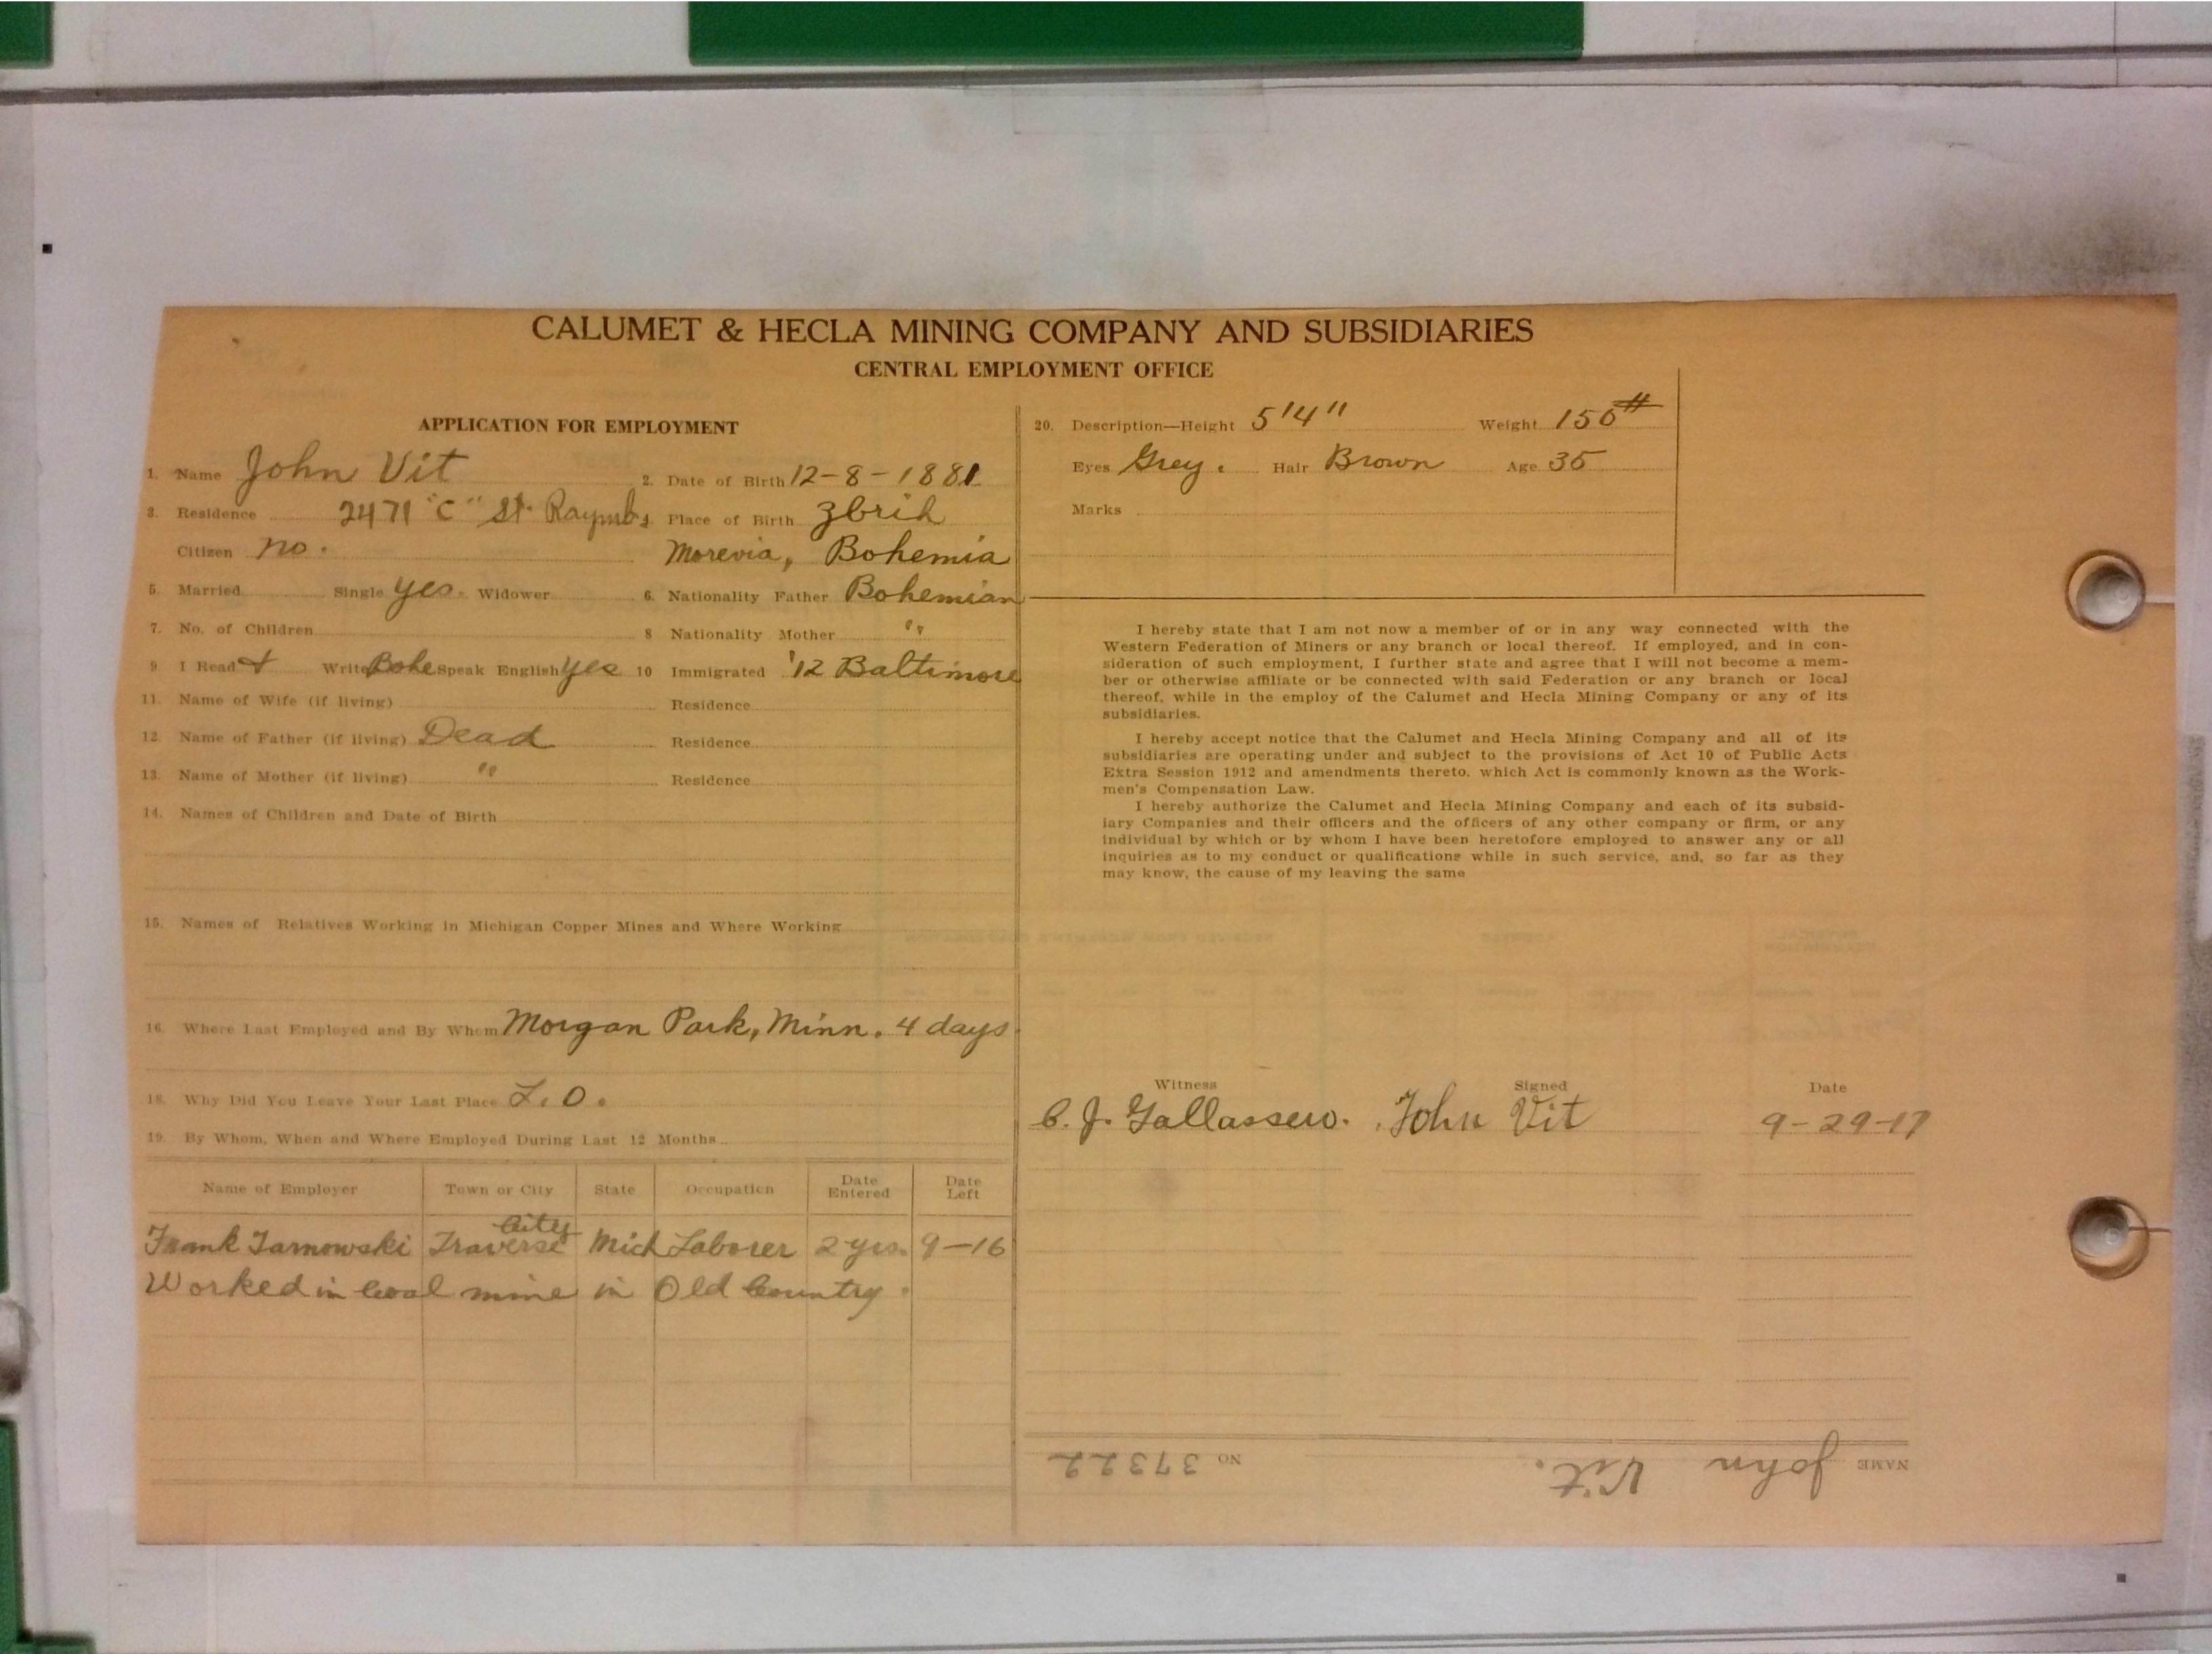 CALUMET & HECLA MINING COMPANY AND SUBSIDIARIES
CENTRAL EMPLOYMENT OFFICE
APPLICATION FOR EMPLOYMENT
1. Name John Vit 2. Date of Birth 12-8-1881
3. Residence 2471 "C" St. Raymb. Place of Birth Zbrih
Citizen no. Morevia, Bohemia
5. Married Single yes. Widower 6. Nationality Father Bohemian
7. No. of Children 8 Nationality Mother "
9 I Read & Write Bohe Speak English yes 10 Immigrated '12 Baltimore
11. Name of Wife (if living) Residence
12 Name of Father (if living) Dead Residence
13. Name of Mother (if living) " Residence
14. Names of Children and Date of Birth
15. Names of Relatives Working in Michigan Copper Mines and Where Working
16. Where Last Employed and By Whom Morgan Park, Minn. 4 days
18. Why Did You Leave Your Last Place L.O.
19. By Whom, When and Where Employed During Last 12 Months
Name of Employer Town or City State Occupation Date Entered Date Left
Frank Tarnowski Traverse City Mich Laborer 2 yrs. 9-16
Worked in Coal mine in Old Country.
20. Description—Height 5'4" Weight 150#
Eyes Grey. Hair Brown Age 35
Marks
I hereby state that I am not now a member of or in any way connected with the
Western Federation of Miners or any branch or local thereof. If employed, and in con-
sideration of such employment, I further state and agree that I will not become a mem-
ber or otherwise affiliate or be connected with said Federation or any branch or local
thereof, while in the employ of the Calumet and Hecla Mining Company or any of its
subsidiaries.
I hereby accept notice that the Calumet and Hecla Mining Company and all of its
subsidiaries are operating under and subject to the provisions of Act 10 of Public Acts
Extra Session 1912 and amendments thereto, which Act is commonly known as the Work-
men's Compensation Law.
I hereby authorize the Calumet and Hecla Mining Company and each of its subsid-
iary Companies and their officers and the officers of any other company or firm, or any
individual by which or by whom I have been heretofore employed to answer any or all
inquiries as to my conduct or qualifications while in such service, and, so far as they
may know, the cause of my leaving the same
Witness Signed Date
C. J. Gallassero. John Vit 9-29-17
NAME John Vit. NO 37322